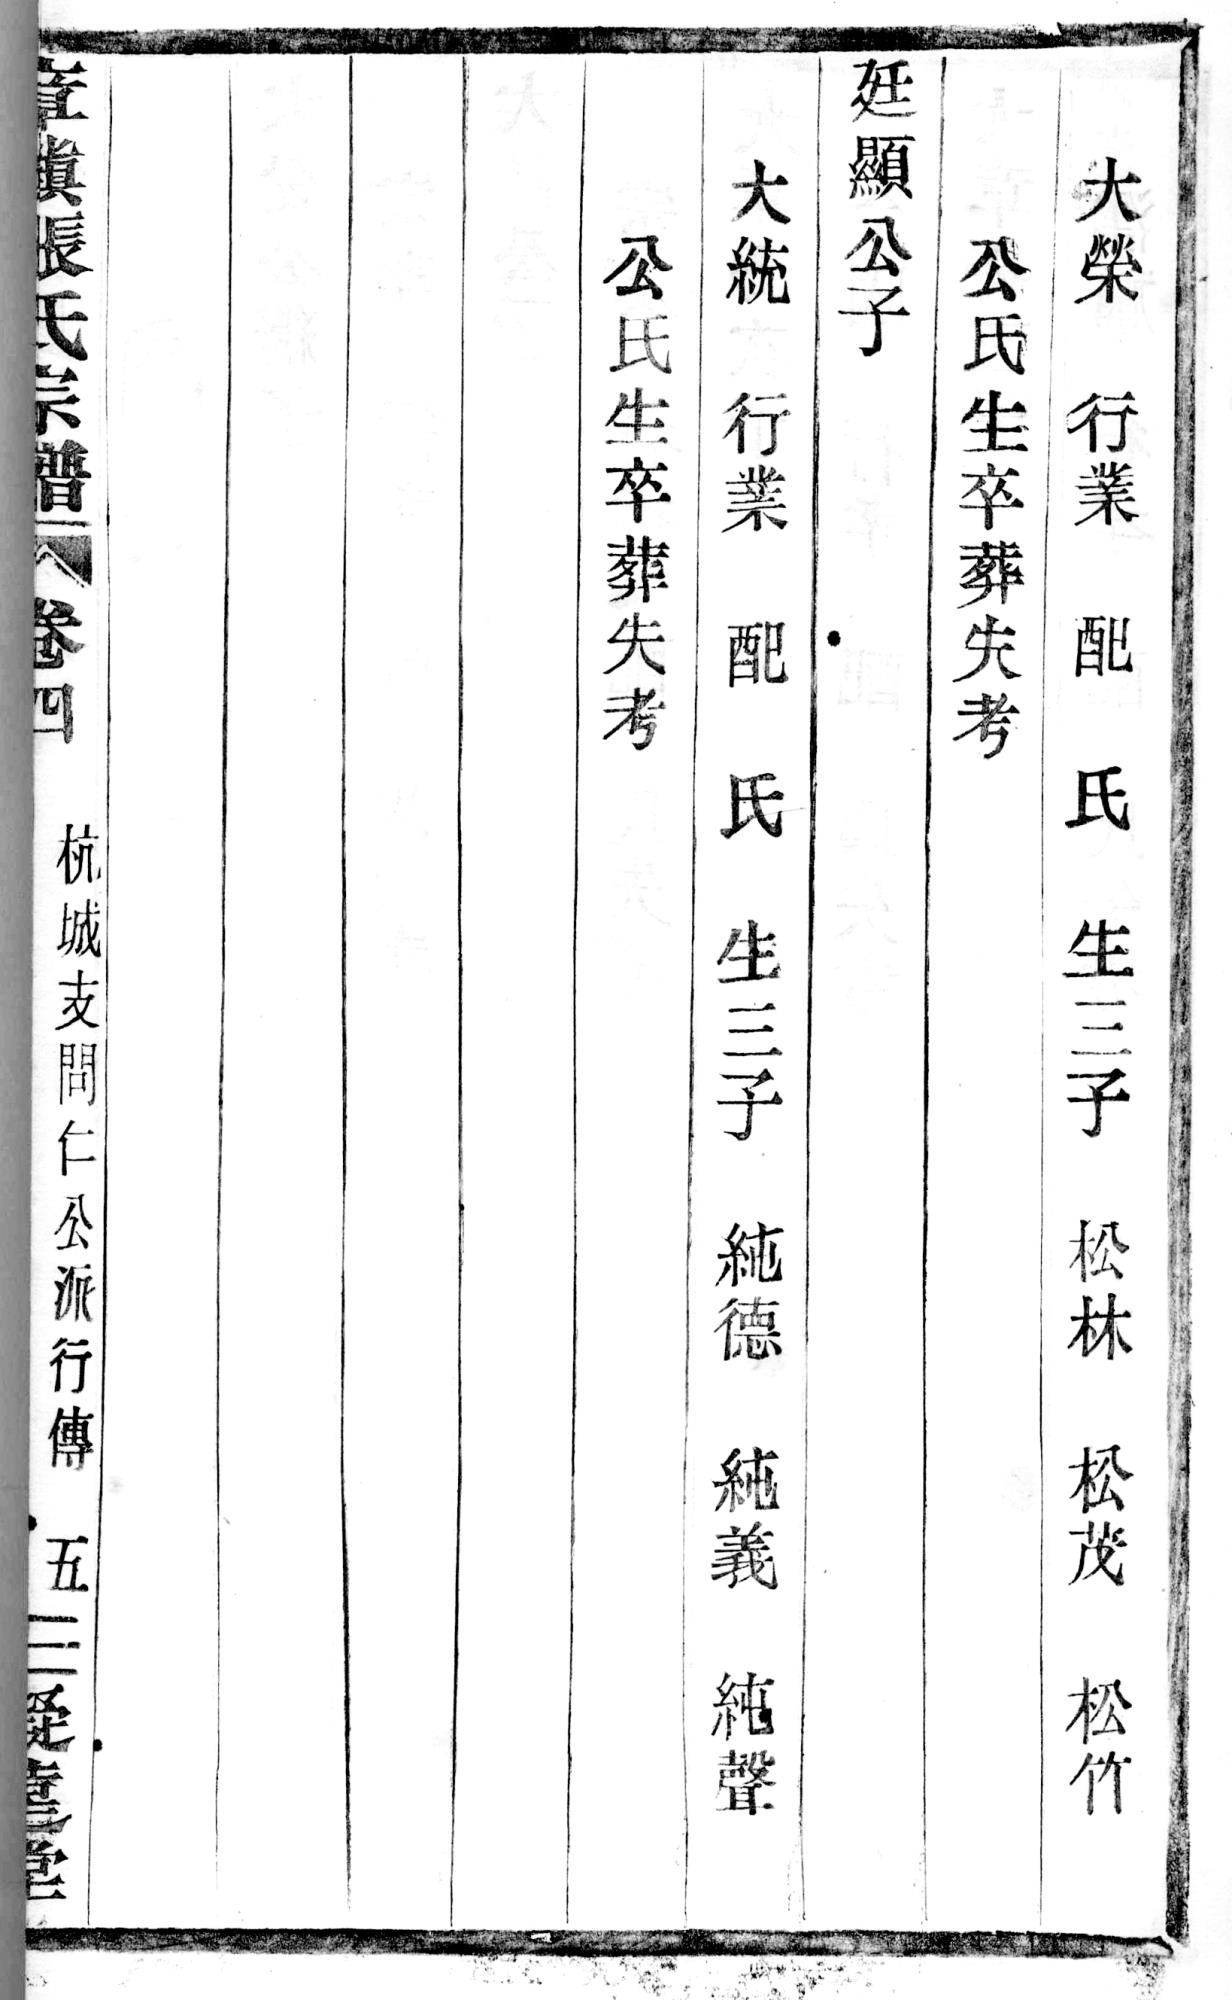 大榮　行業　配　氏　生三子　松林　松茂　松竹
公氏生卒葬失考
廷顯公子
大統　行業　配　氏　生三子　純德　純義　純聲
公氏生卒葬失考
章鎮張氏宗譜　卷四　杭城支問仁公派行傳　五　三凝壹堂